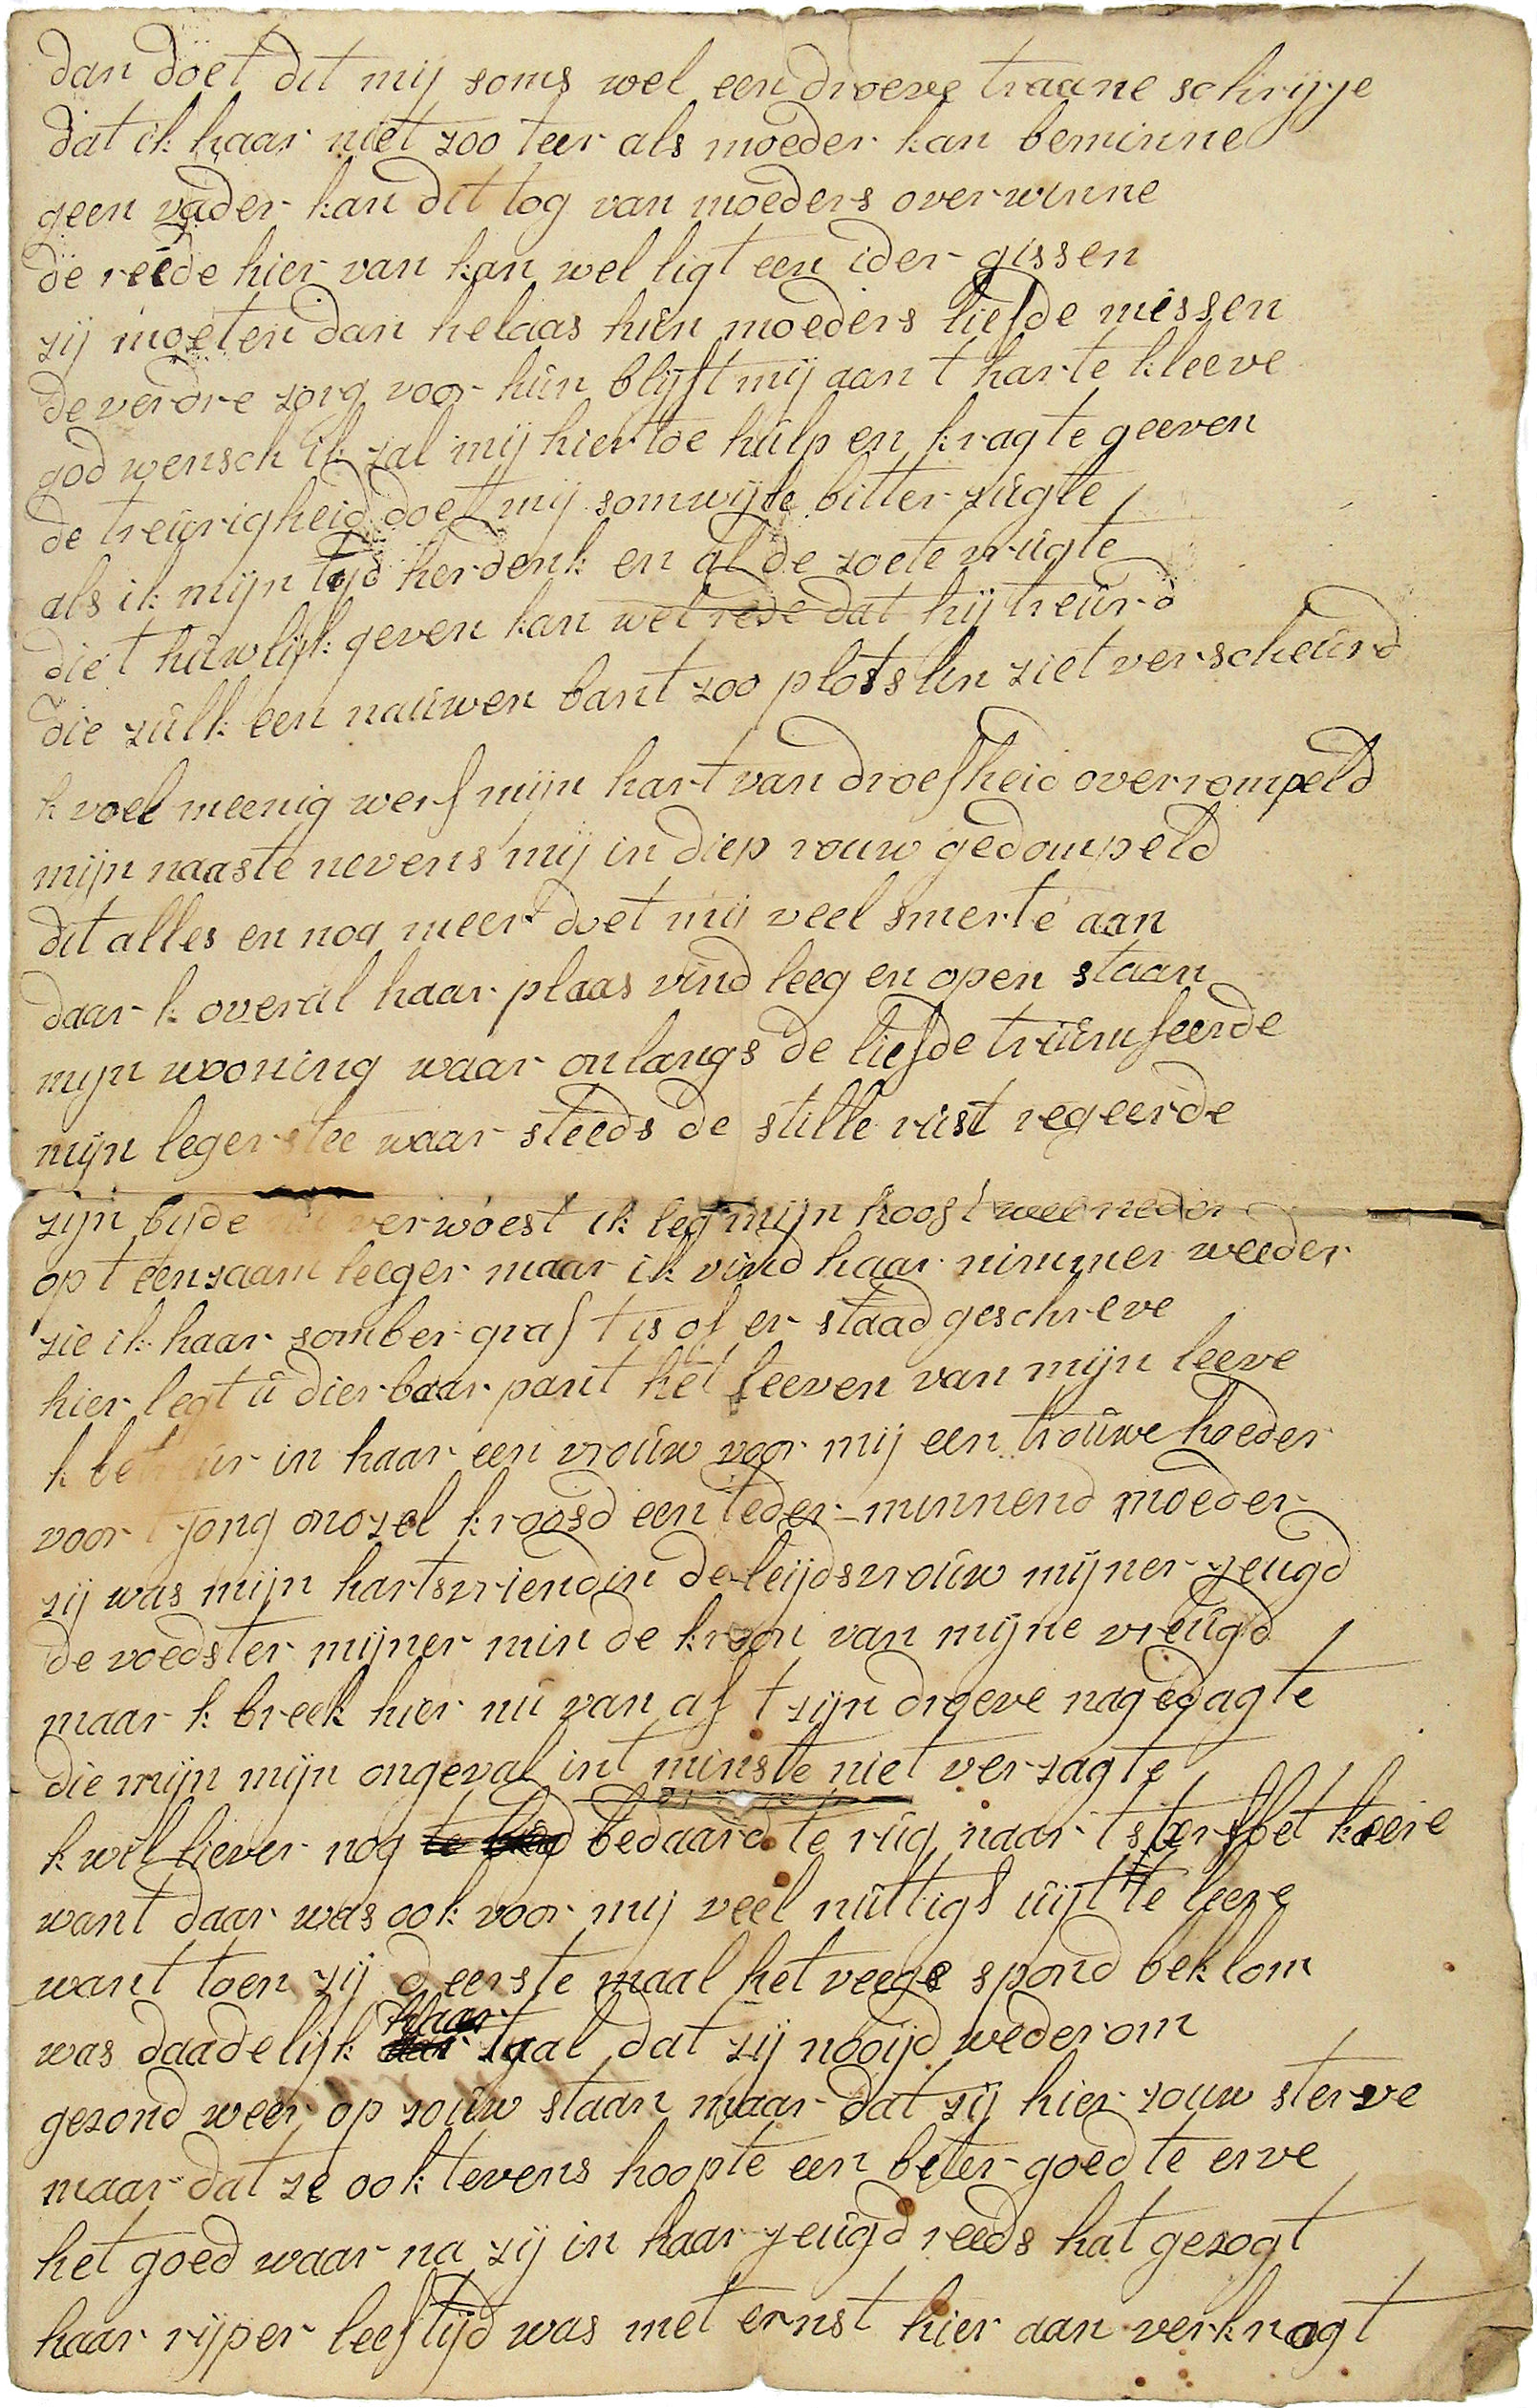 dan doet dit mij soms wel een droeve traane schrijje
dat ik haar niet zoo teer als moeder kan beminne
geen vader kan dit tog van moeders overwinne
de reede hier van kan wel ligt een ider gissen
zij moeten dan helaas hün moeders liefde missen
de verdre zorg voor hün blijft mij aan t harte kleeve
god wensch ik zal mij hier toe hülp en kragte geeven
de treürigheid doet mij somwijle bitter zügte
als ik mijn tijd herdenk en al de zoete vrügte
die t hüwlijk geven kan wel rede dat hij treürd
die zülk een naüwen bant zoo plotslin ziet verscheürd
k voel meenig werf mijn hart van droefheid overrompeld
mijn naaste nevens mij in diep rouw gedompeld
dit alles en nog meer doet mij veel smerte aan
daar k overal haar plaas vind leeg en open staan
mijn wooning waar onlangs de liefde triümfeerde
mijn legerstee waar steeds de stille rüst regeerde
zijn bijde verwoest ik leg mijn hooft wee neder
op t eenzaam leeger maar ik vind haar nimmer weeder
zie ik haar somber graf t is of er staad geschreve
hier legt ü dierbaar pant het leeven van mijn leeve
k betreür in haar een vroüw voor mij een troüwe hoeder
voor t jong onozel kroosd een teder minnend moeder
zij was mijn hartsvriendin de leijdsvroüw mijner jeugd
de voedster mijner min de kroon van mijne vreügd
maar k breek hier nü van af t zijn droeve nagedagte
die mijn mijn ongeval int minste niet verzagte
k wil liever nog bedaard te rüg naar t sterfbet keere
want daar was ook voor mij veel nüttigs üijt te leere
want toen zij d eerste maal het veege spond beklom
was daadelijk haar taal dat zij nooijd wederom
gezond weer op zoüw staan maar dat zij hier zouw sterve
maar dat ze ook tevens hoopte een beter goed te erve
het goed waar na zij in haar jeügd reeds hat gezogt
haar rijper leeftijd was met ernst hier aan verknogt